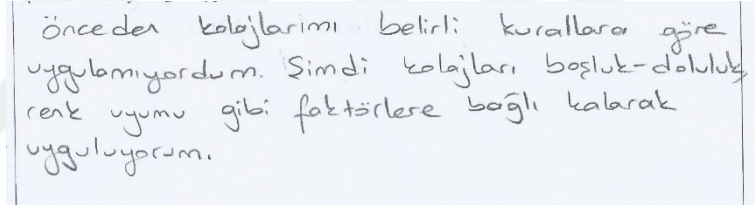 önceden kolajlarımı belirli kurallara göre
uygulamıyordum. Şimdi kolajları boşluk-doluluk,
renk uyumu gibi faktörlere bağlı kalarak
uyguluyorum.